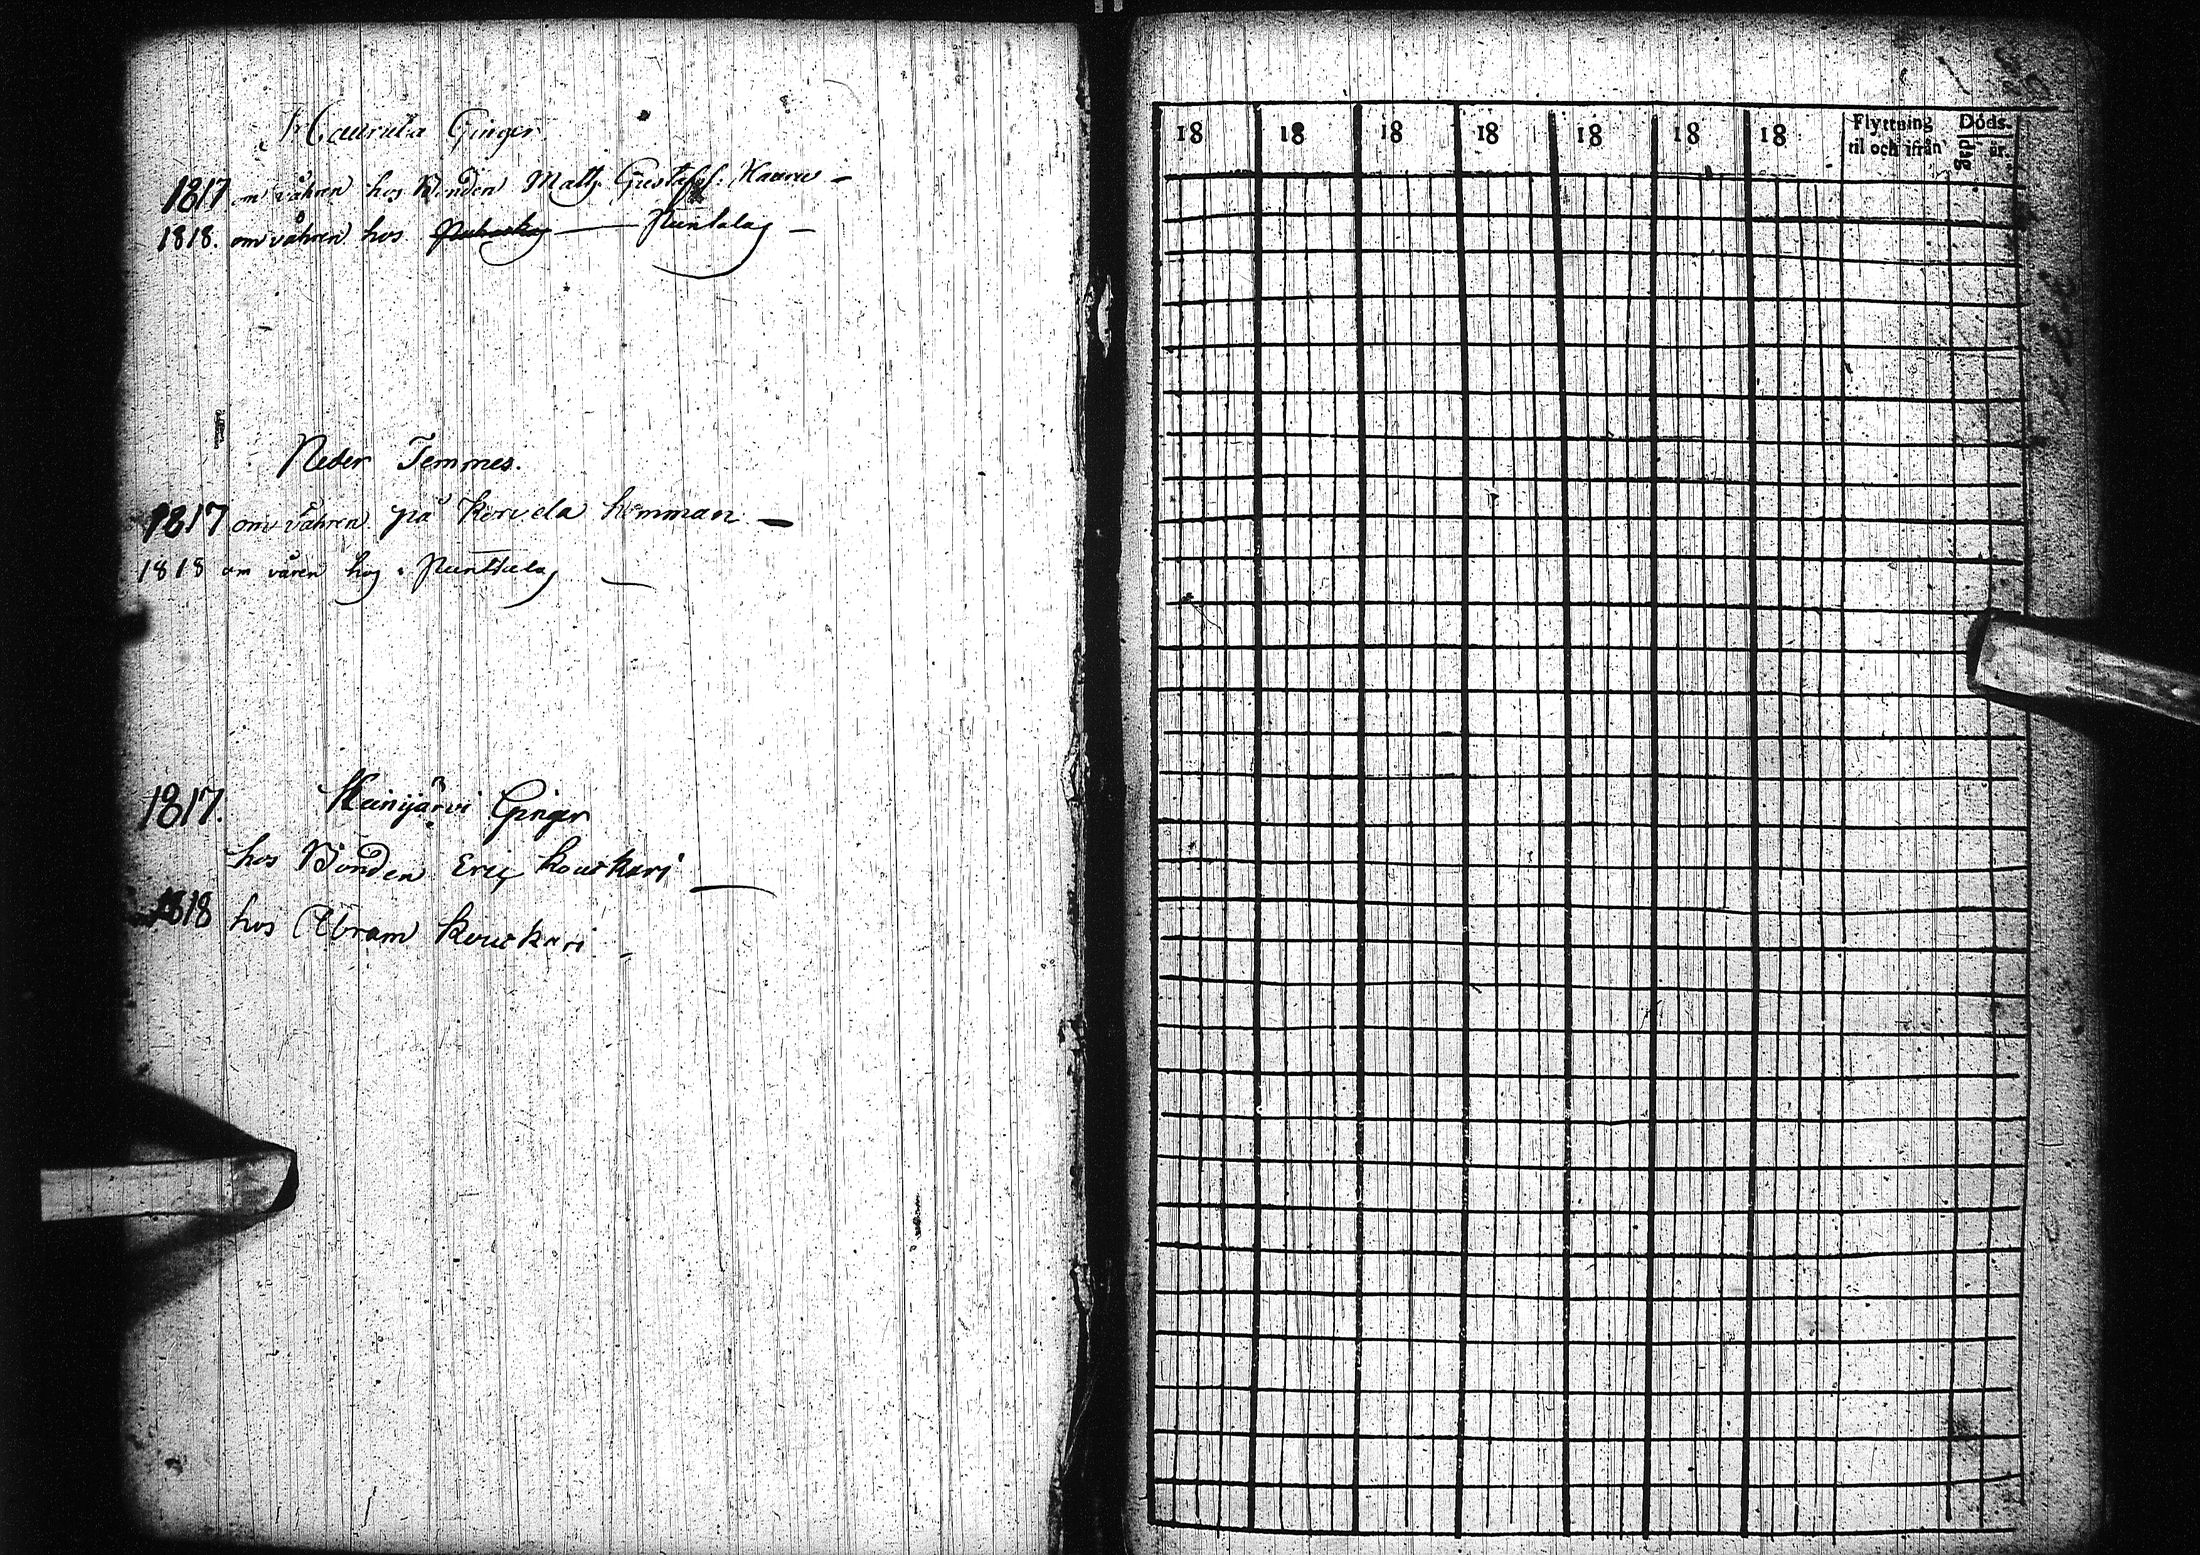 Haurula Ginger
1817 om våhren hos Bonden Matts Gustafss: Kauru —
1818. om våhren hos Puhaskaj — Runtalaj —
Neder Temmes.
1817 om våhren på Korvela hemman —
1818 om våren hos Runttalaj —
1817. Kuinijärvi Ginger
hos Bonden Eric Kouckari —
1818 hos Abram Kouckari -
18 18 18 18 18 18 18 Flyttning til och ifrån Döds- dag år.